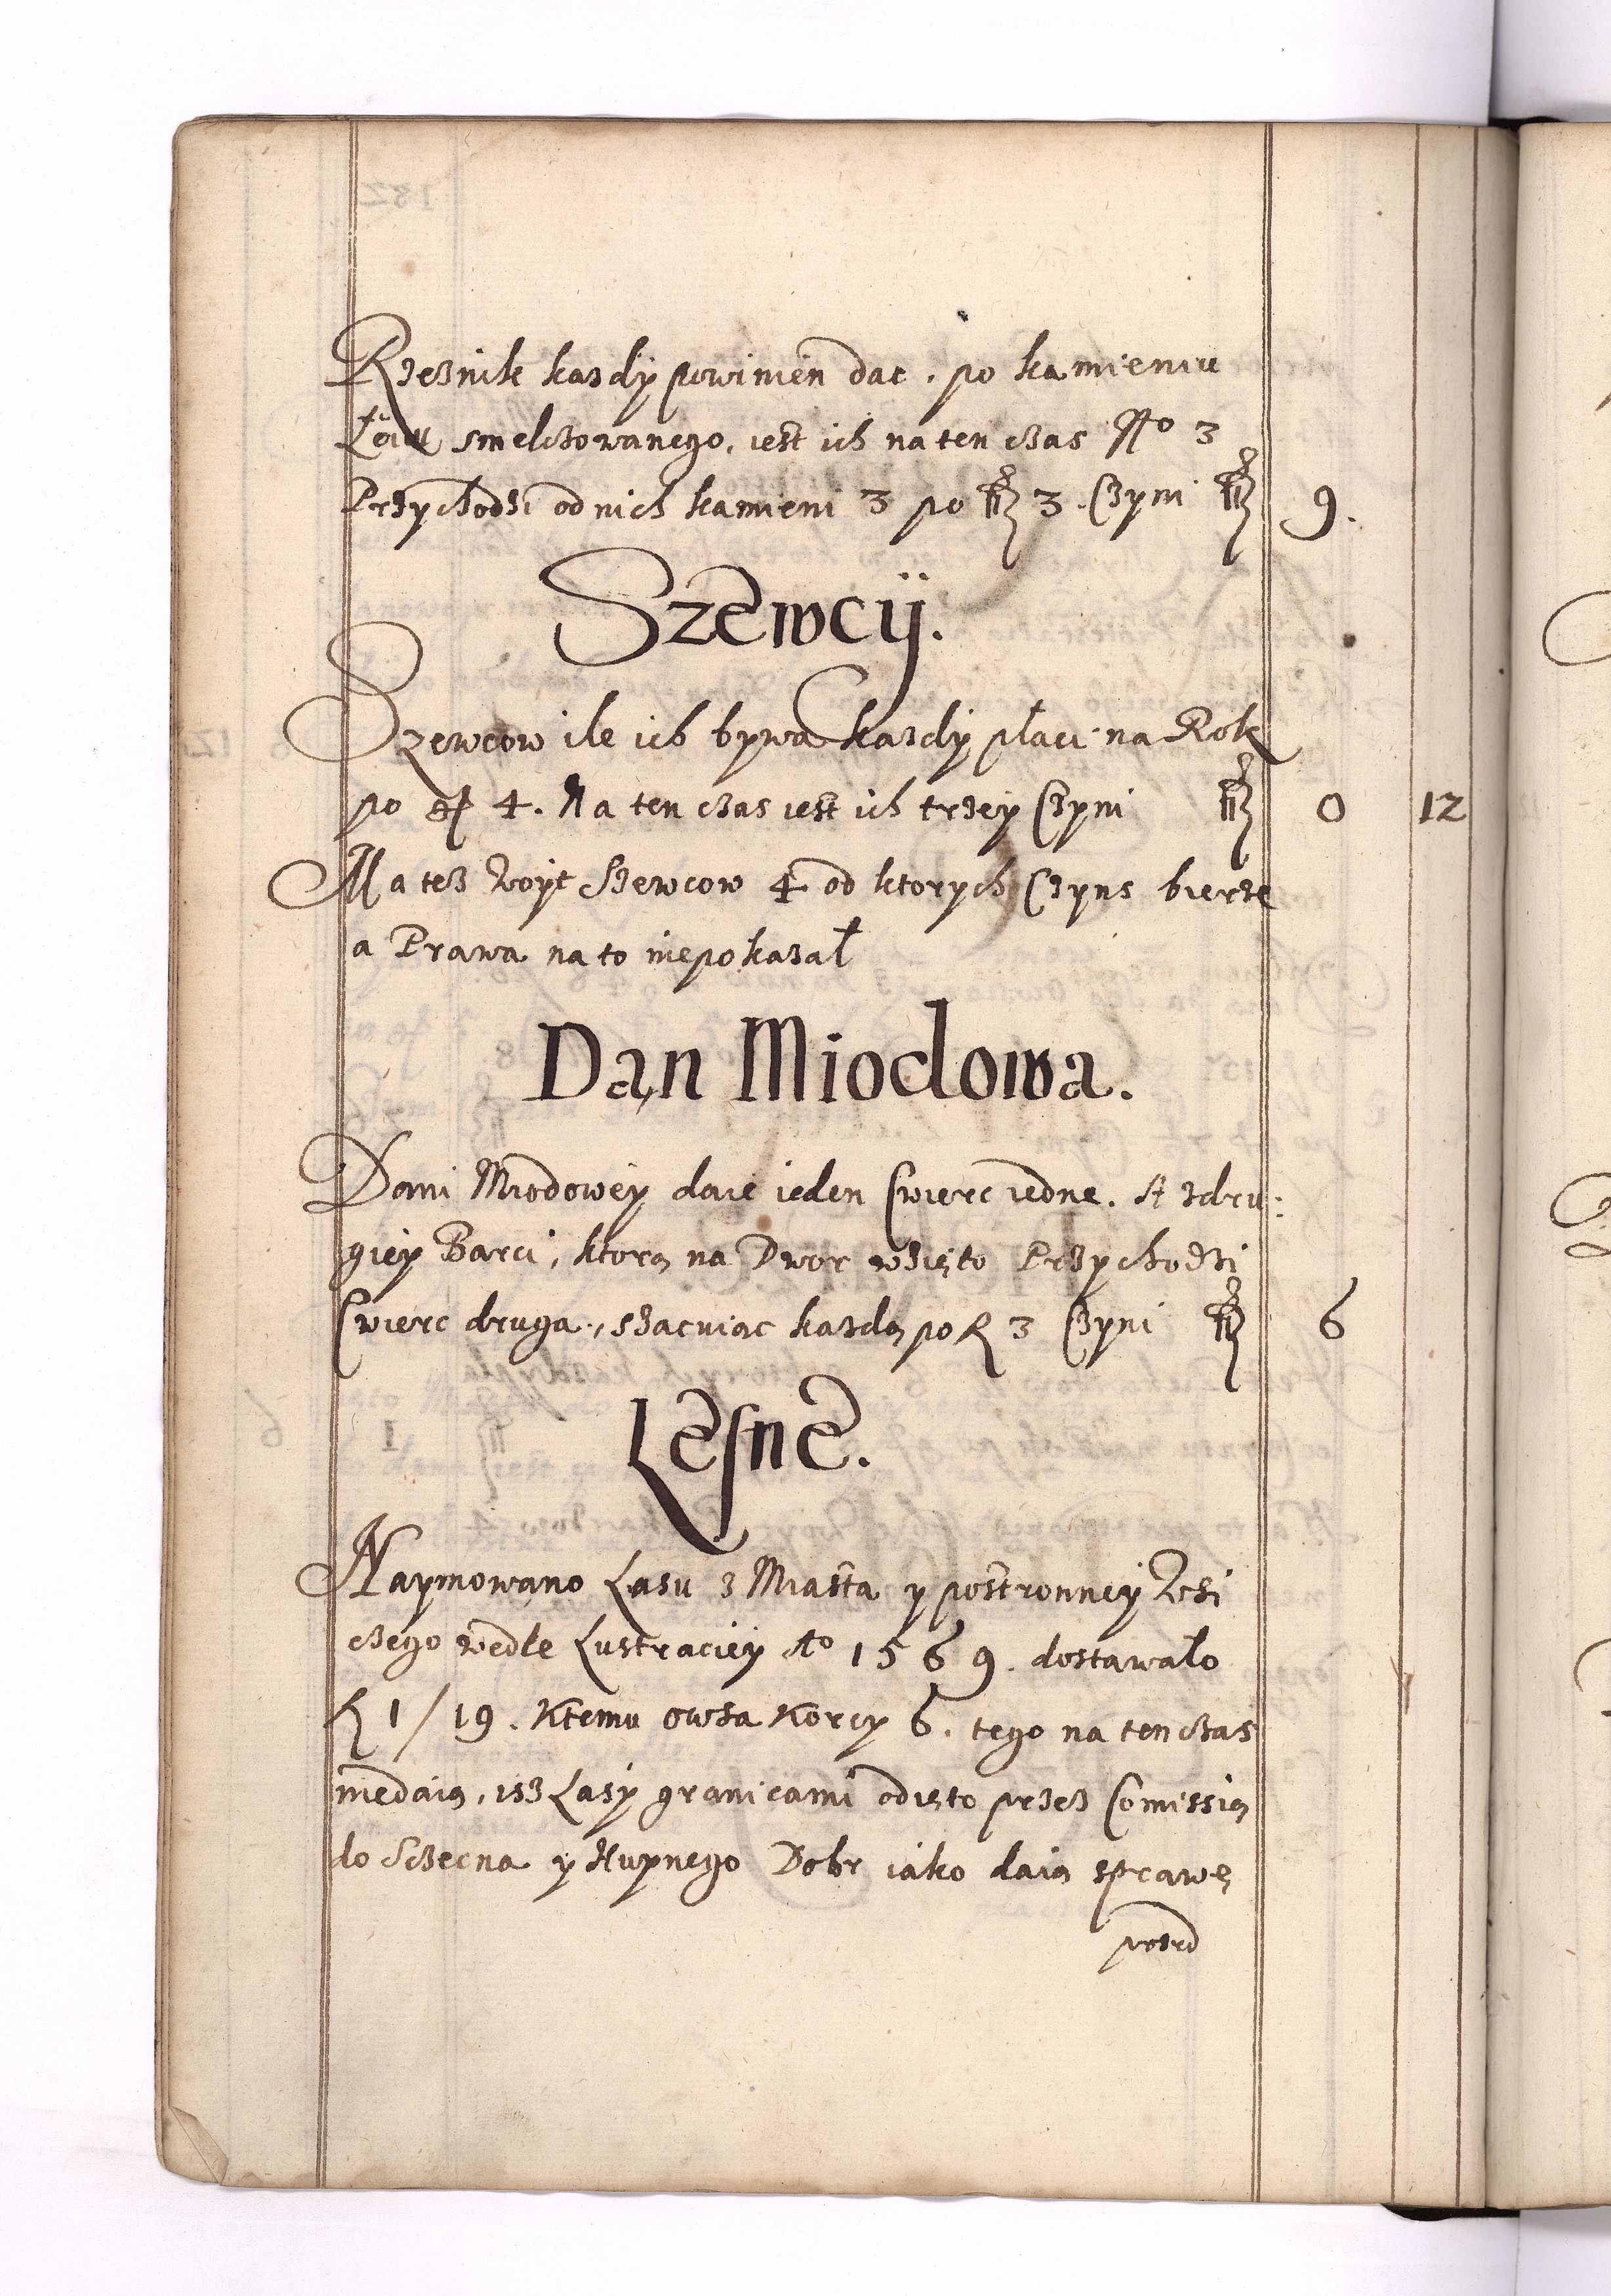 Rzeznik kazdy powinien dac, po kamieniu
Łoiu smelczowanego, iest ich na ten czas No 3
Przychodzi od nich kamieni 3 po fl 3. Czyni fl 9.
Szewcy.
Szewcow ile ich bywa kazdy płaci na Rok
po gr 4. Na ten czas iest ich trzey Czyni fl 0 12
Ma tez Woyt Szewcow 4 od ktorych Czyns bierze
a Prawa na to niepokazał
Dan Miodowa.
Dani Miodowey daie ieden Cwierc iedne. A zdru:
giey Barci, ktorą na Dwor wzięto Przychodzi
Cwierc druga, szacuiac kazdą po R 3 Czyni fl 6
Lesne.
Naymowano Lasu z Miasta y postronney Wsi
czego wedle Lustraciey Ao 1569. dostawało
R 1/19. Ktemu owsa Korcy 6. tego na ten czas
niedaią, isz Lasy granicami odięto przez Comissią
do Sczecna y Hupnego Dobr iako daią sprawę